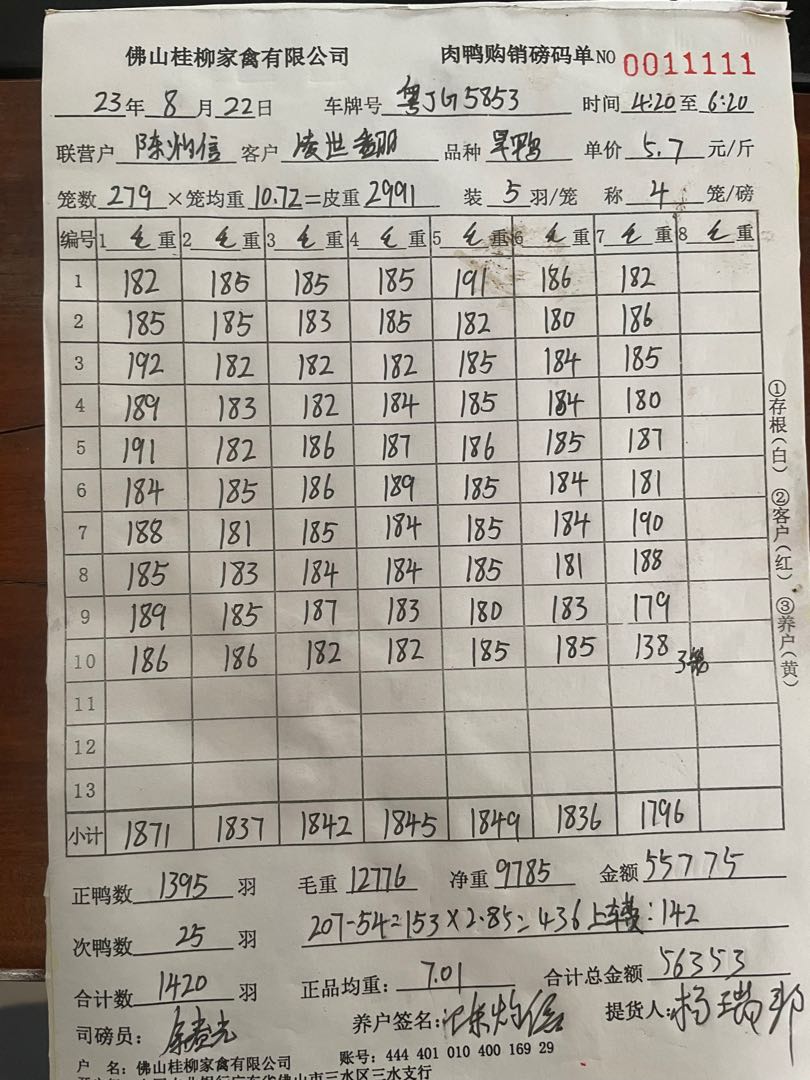 佛山桂柳家禽有限公司 肉鸭购销磅码单 NO 0011111
23年 8月22日 车牌号 粤JG5853 时间 4:20至6:20
联营户 陈灼信 客户 凌世 品种 旱鸭 单价 5.7 元/斤
笼数 279 ×笼均重 10.72=皮重 2991 装 5 羽/笼 称 4 笼/磅
编号 1 毛重 2 毛重 3 毛重 4 毛重 5 毛重 6 毛重 7 毛重 8 毛重
1 182 185 185 185 191 186 182
2 185 185 183 185 182 180 186
3 192 182 182 182 185 184 185
4 189 183 182 184 185 184 180
5 191 182 186 187 186 185 187
6 184 185 186 189 185 184 181
7 188 181 185 184 185 184 190
8 185 183 184 184 185 181 188
9 189 185 187 183 180 183 179
10 186 186 182 182 185 185 138 3笼
11
12
13
小计 1871 1837 1842 1845 1849 1836 1796
①存根(白) ②客户(红) ③养户(黄)
正鸭数 1395 羽 毛重 12776 净重 9785 金额 55775
次鸭数 25 羽 207-54=153×2.85=436 上车费:142
合计数 1420 羽 正品均重: 7.01 合计总金额 56353
司磅员: 养户签名: 陈灼信 提货人: 杨瑞邦
户 名: 佛山桂柳家禽有限公司 账号: 444 401 010 400 169 29
佛山市三水区三水支行